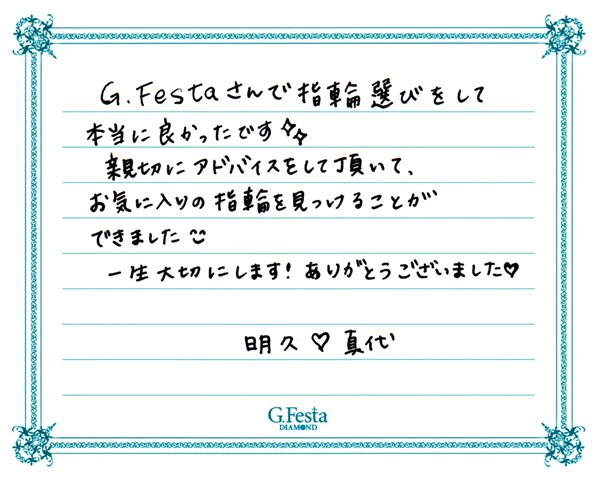 G.Festaさんで指輪選びをして
本当に良かったです✨
親切にアドバイスをして頂いて、
お気に入りの指輪を見つけることが
できました☺
一生大切にします！ありがとうございました♡
明久♡真代
G.Festa
DIAMOND